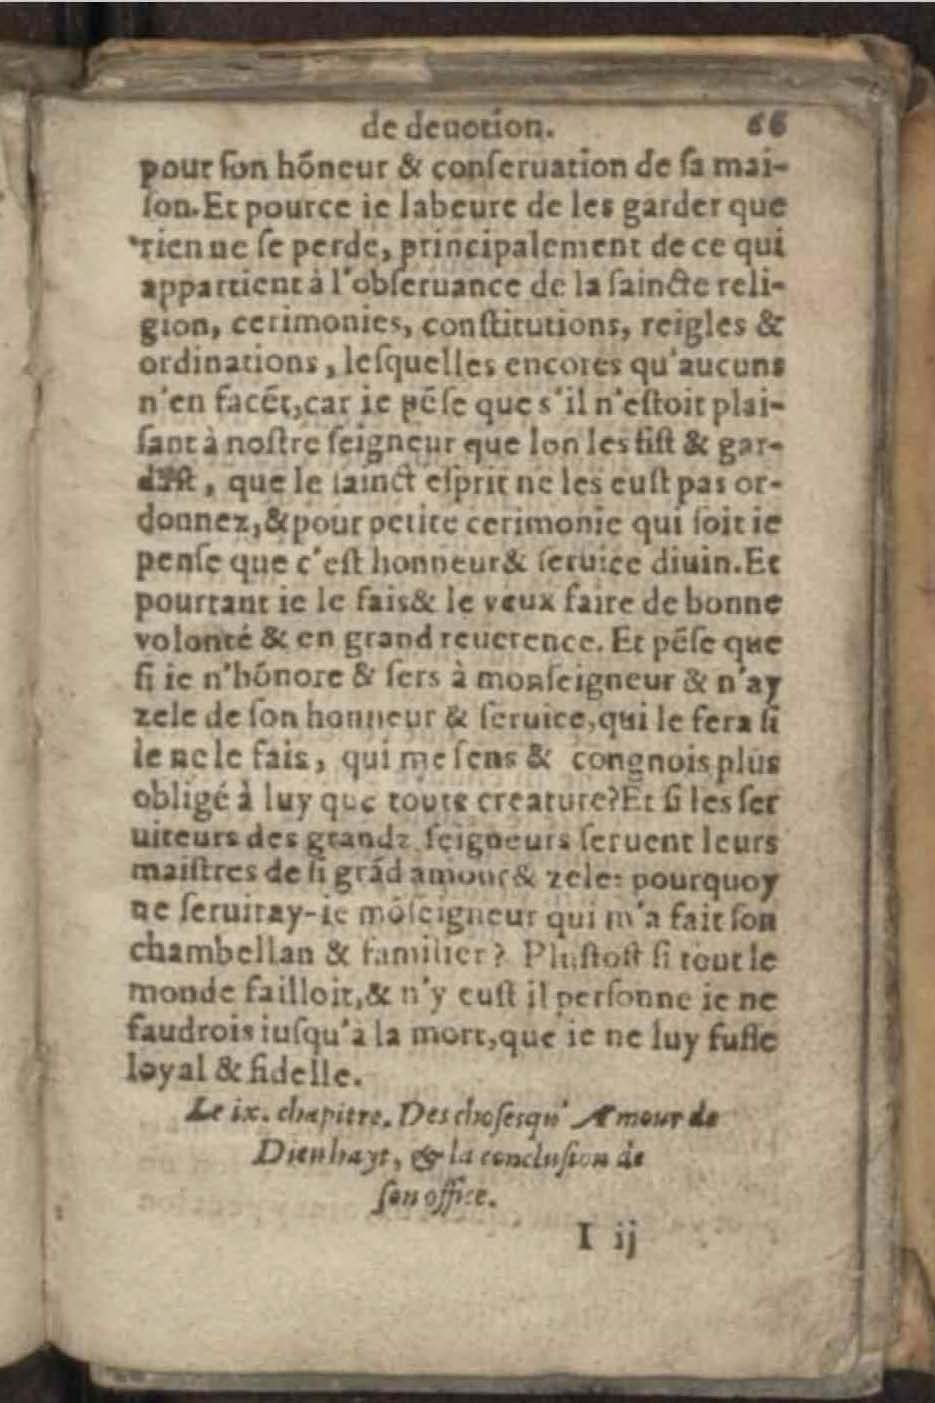 de deuotion. 66
pour ſon hõneur & conſeruation de ſa mai-
ſon. Et pource ie labeure de les garder que
rien ne ſe perde, principalement de ce qui
appartient à l'obſeruance de la ſaincte reli-
gion, cerimonies, conſtitutions, reigles &
ordinations, leſquelles encores qu'aucuns
n'en facẽt, car ie pẽſe que s'il n'eſtoit plai-
ſant à noſtre ſeigneur que lon les fiſt & gar-
daſt, que le ſainct eſprit ne les euſt pas or-
donnez, & pour petite cerimonie qui ſoit ie
penſe que c'eſt honneur & ſeruice diuin. Et
pourtant ie le fais & le veux faire de bonne
volonté & en grand reuerence. Et pẽſe que
ſi ie n'hõnore & ſers à monſeigneur & n'ay
zele de ſon honneur & ſeruice, qui le fera ſi
ie ne le fais, qui me ſens & congnois plus
obligé à luy que toute creature? Et ſi les ſer
uiteurs des grandz ſeigneurs ſeruent leurs
maiſtres de ſi grãd amour & zele: pourquoy
ne ſeruiray-ie mõſeigneur qui m'a fait ſon
chambellan & familier? Pluſtoſt ſi tout le
monde failloit, & n'y euſt il perſonne ie ne
faudrois iuſqu'à la mort, que ie ne luy fuſſe
loyal & fidelle.
Le ix. chapitre. Des choſes qu'Amour de
Dieu hayt, & la concluſion de
ſon office.
I ij